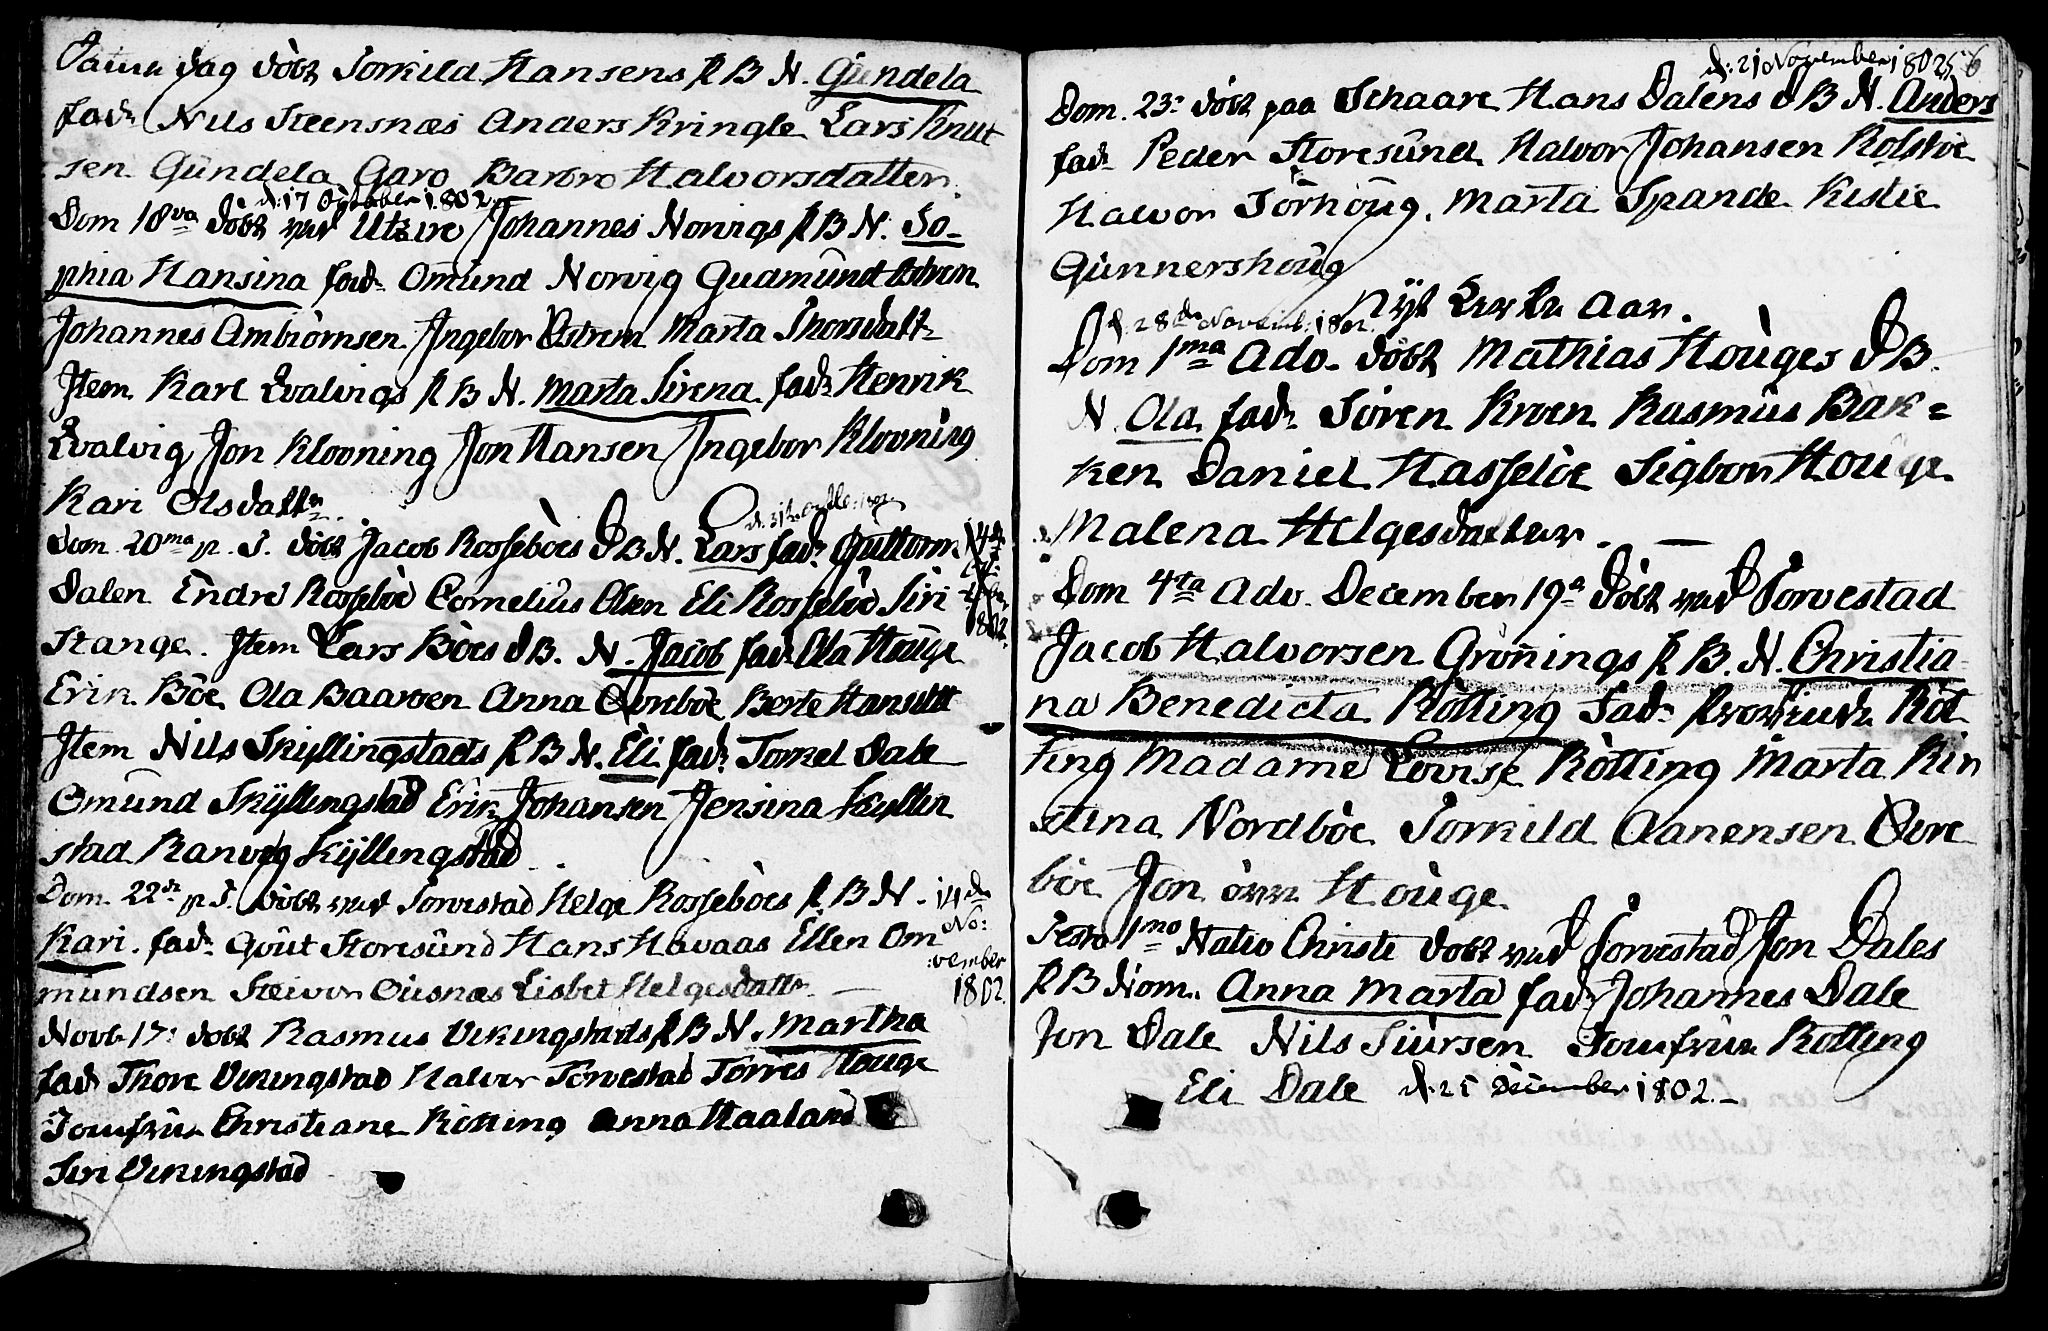 Samme dag döbt Torkild Hansens P B N. Gùndela
fadr Nils Steensnæs Anders Kringle Lars Knut
sen Gùndela Garo Barbro Halvorsdatter.
d: 17 October 1802.
Dom 18va döbt ved Utsire Johannes Norvigs P B N. So-
phia Hansina fadr Omùnd Norvig Gudmùnd Østrem
Johannes Ambiörnsen Ingebor Østrem Marta Thorsdattr
Item Karl Qvalvigs P B N. Marta Sirena fadr Henrik
Qvalvig Jon Klovning Jon Hansen Ingebor Klovning
Kari Olsdattr.
Dom 20ma p. T. döbt Jacob Rosseböes D B N. Lars fadr Gùttorm
Dalen Endre Rosseböe Cornelius Olsen Eli Rosseböe Siri
1802.
Stange. Item Lars Böes D B. N. Jacob fadr Ola Hoùge
Erik Böe Ola Baarsen Anna Øvreböe Berte Hansdtt
Item Nils Skÿllingstads P B N. Eli fadr Torkel Dale
Omùnd Skÿllingstad Erik Johansen Jensina Skyllin
stad Ranveg Skÿllingstad.
Dom. 22de p T. döbt ved Torvestad Helge Rosseböes P B N.
14de
No:
vember
1802.
Kari. fadr Goùt Storesùnd Hans Havaas Ellen Om
mùndsen Steivor Ousnæs Lisbet Helgesdattr. —
Novb. 17: döbt Rasmus Vikingstads P B N. Martha
fadr Thore Vikingstad Halvor Torvestad Torres Hoùge
Jomfrue Christiane Rötting Anna Haaland
Siri Vikingstad
d: 21 November 1802
56
Dom. 23: döbt paa Schaare Hans Dalens D B N. Anders
fadr Peder Storesùnd Halvor Johansen Rosseböe
Halvor Törhoùg. Marta Spande Kistie
Gùnnershoùg
Nyt Kirke Aar.
d. 28de Novemb. 1802.
Dom 1ma Adv. döbt Mathias Hoùges D B.
N. Ola fadr Sören Kroen Rasmùs Bak=
ken Daniel Hasselöe Sigbor Hoùge
Malena Helgesdatter. —
Dom 4ta Adv. December 19de döbt ved Torvestad
Jacob Halvorsen Grönnings P B. N. Christia-
na Benedicta Rötting Fadr Röt
ting Madame Lovise Rötting Marta Kir
stina Nordböe Torkild Aanensen Øvre
böe Jon Hoùge
Festo 1mo Nativ Christi döbt ved Torvestad Jon Dales
P B Nom. Anna Marta fadr Johannes Dale
Jon Dale Nils Siùrsen Jomfrue Rötting
Eli Dale d. 25 December 1802.—